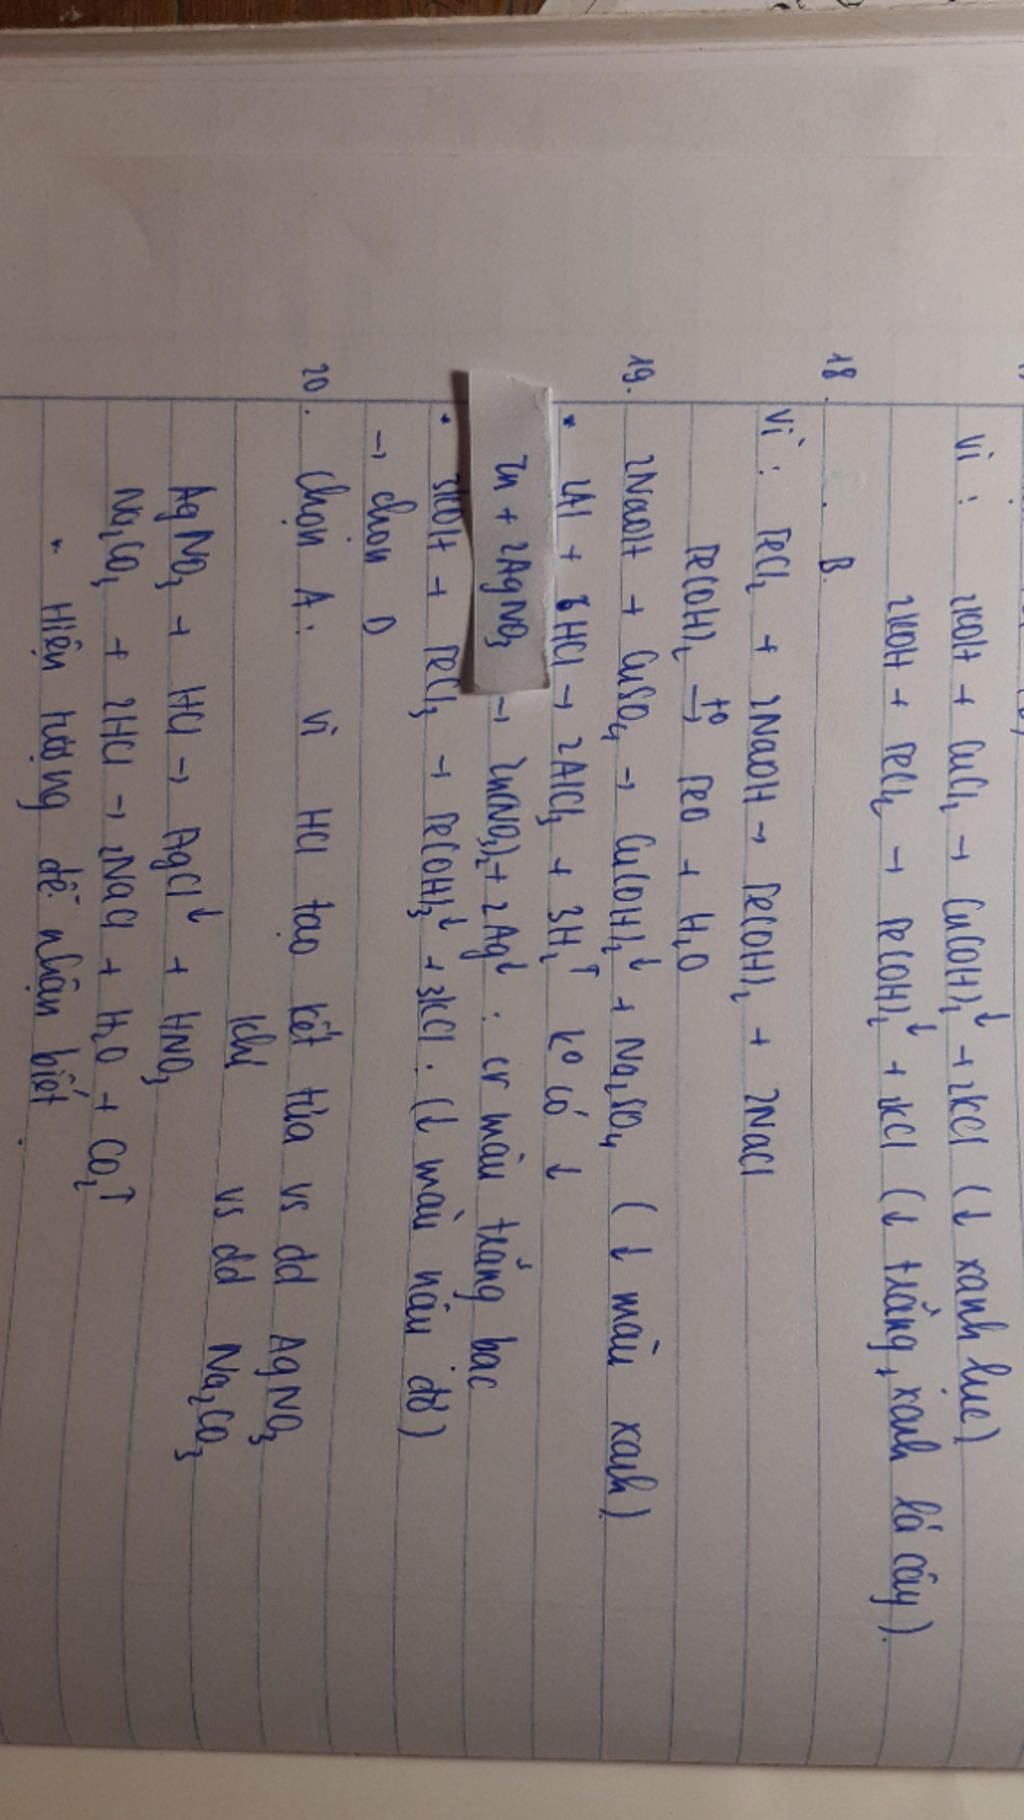 Vì : 2KOH + CuCl₂ → Cu(OH)₂↓ + 2KCl (↓ xanh lục)
2KOH + FeCl₂ → Fe(OH)₂↓ + 2KCl (↓ trắng, xanh lá cây).
18. B.
Vì : FeCl₂ + 2NaOH → Fe(OH)₂ + 2NaCl
Fe(OH)₂ →t° FeO + H₂O
19. 2NaOH + CuSO₄ → Cu(OH)₂↓ + Na₂SO₄ (↓ màu xanh)
* 2Al + 6HCl → 2AlCl₃ + 3H₂↑ ko có ↓
Zn + 2AgNO₃ → Zn(NO₃)₂ + 2Ag↓ : cr màu trắng bạc
* 3KOH + FeCl₃ → Fe(OH)₃↓ + 3KCl. (↓ màu nâu đỏ)
→ chọn D
20. Chọn A. Vì HCl tạo kết tủa vs dd AgNO₃
khí vs dd Na₂CO₃
AgNO₃ + HCl → AgCl↓ + HNO₃
Na₂CO₃ + 2HCl → 2NaCl + H₂O + CO₂↑
* Hiện tượng dễ nhận biết.